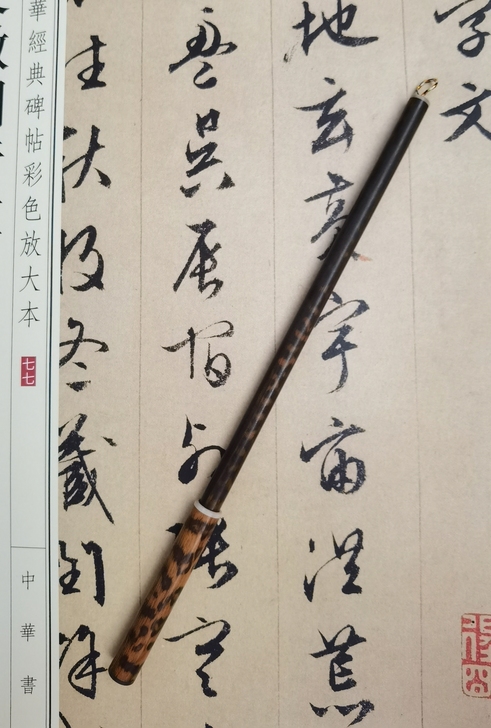 字文
地玄黃宇宙洪荒
盈昃辰宿列張寒
往秋收冬藏閏餘
華經典碑帖彩色放大本
七七
中華書